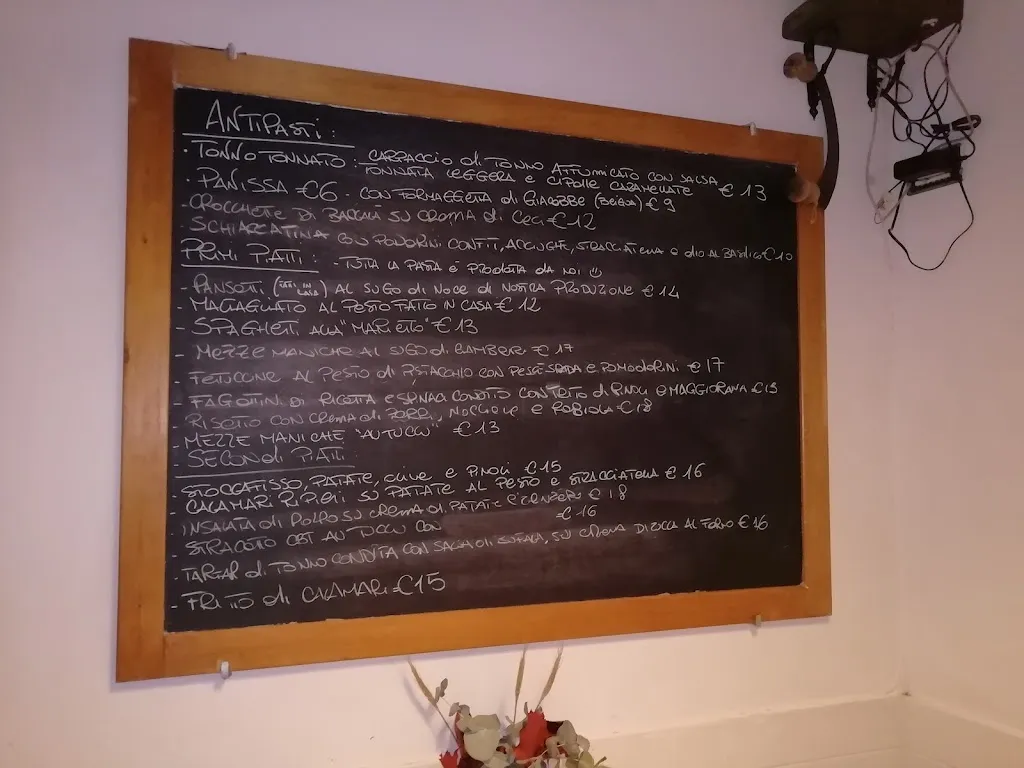 ANTIPASTI:
· TONNO TONNATO: CARPACCIO di TONNO AFFUMICATO CON SALSA
TONNATA LEGGERA e CIPOLLE CARAMELLATE € 13
· PANISSA €6 - CON FORMAGGETTA di GIACOBBE (BEIGUA) € 9
- CROCCHETTE DI BACCALA SU CREMA di CECI € 12
· SCHIACCATINA CON POMODORINI CONFIT, ACCIUGHE, STRACCIATELLA e OLIO AL BASILICO €10
PRIMI PIATTI: - TUTTA LA PASTA È PRODOTTA DA NOI
- PANSOTI ( ) AL SUGO di NOCE di NOSTRA PRODUZIONE € 14
- MALTAGLIATO AL PESTO FATTO IN CASA € 12
- SPAGHETTI ALLA "MARIETTO" € 13
- MEZZE MANICHE AL SUGO di GAMBERI € 17
- FETUCCINE AL PESTO di PISTACCHIO CON PESCE SPADA e POMODORINI € 17
- FAGOTTINI DI RICOTTA e SPINACI CONDITO CON TRITO di PINOLI e MAGGIORANA €13
- RISOTTO CON CREMA di PORRI, NOCCIOLE e ROBIOLA € 18
- MEZZE MANICHE "AU TUCCU" € 13
- SECONDI PIATTI:
- STOCCAFISSO, PATATE, OLIVE e PINOLI €15
- CALAMARI RIPIENI SU PATATE AL PESTO e STRACCIATELLA € 16
INSALATA di POLPO SU CREMA di PATATE € 18
- STRACOTTO AU TUCCU CON € 16
· TARTAR di TONNO CONDITA CON SALSA di SU CREMA DI ZUCCA AL FORNO € 16
- FRITTO di CALAMARI €15